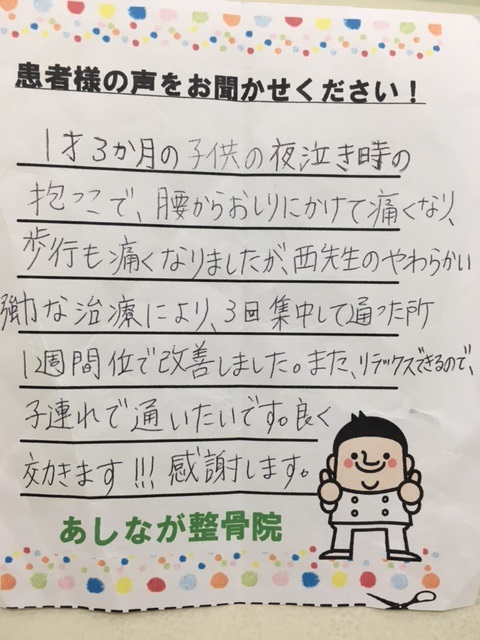 患者様の声をお聞かせください！
1才3か月の子供の夜泣き時の
抱っこで、腰からおしりにかけて痛くなり、
歩行も痛くなりましたが、西先生のやわらかい
強力な治療により、3回集中して通った所
1週間位で改善しました。また、リラックスできるので、
子連れで通いたいです。良く
効きます!!!感謝します。
あしなが整骨院